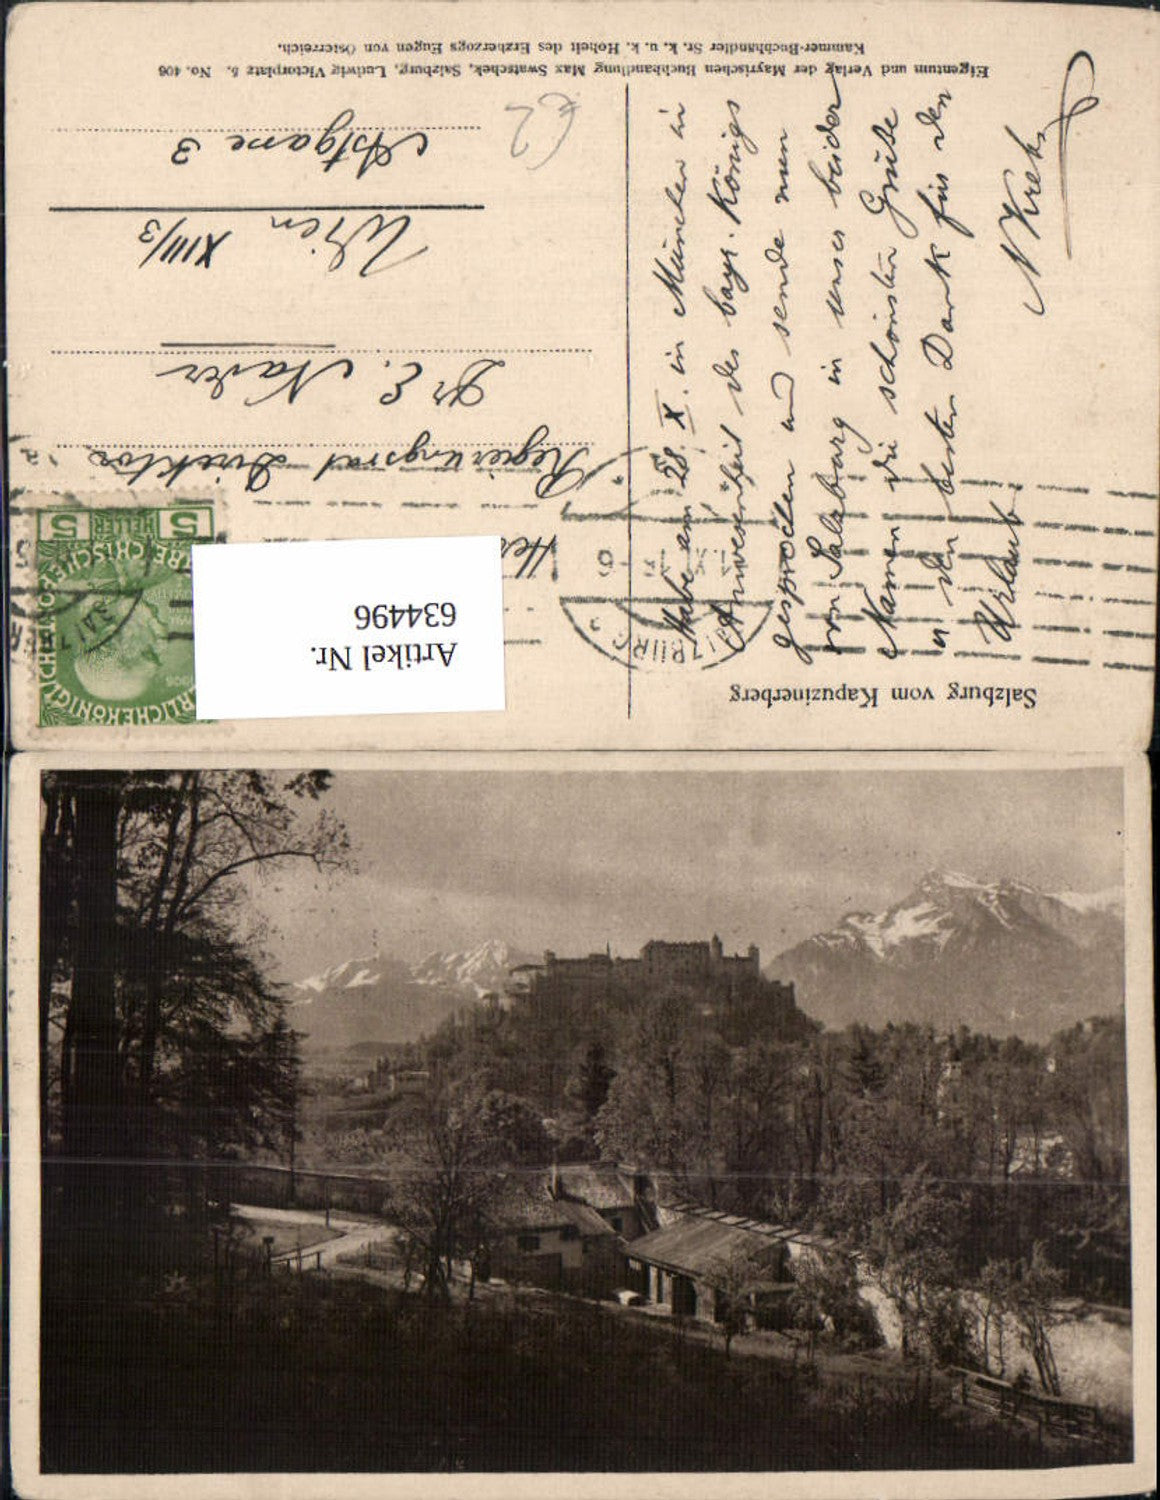 Salzburg vom Kapuzinerberg
Habe am 28. X. in München in
Anwesenheit des bayr. Königs
gesprochen und sende nun
von Salzburg in unser beider
Namen die schönsten Grüße
u den besten Dank für den
Urlaub
N Krebs
Regierungsrat Direktor
Dr E. Nader
Wien XIII/3
Astgasse 3
€2
Eigentum und Verlag der Mayrischen Buchhandlung Max Swatschek, Salzburg, Ludwig Victorplatz 5. No. 406
Kammer-Buchhändler Sr. k. u. k. Hoheit des Erzherzogs Eugen von Österreich.
5 HELLER 5
1908
Artikel Nr.
634496